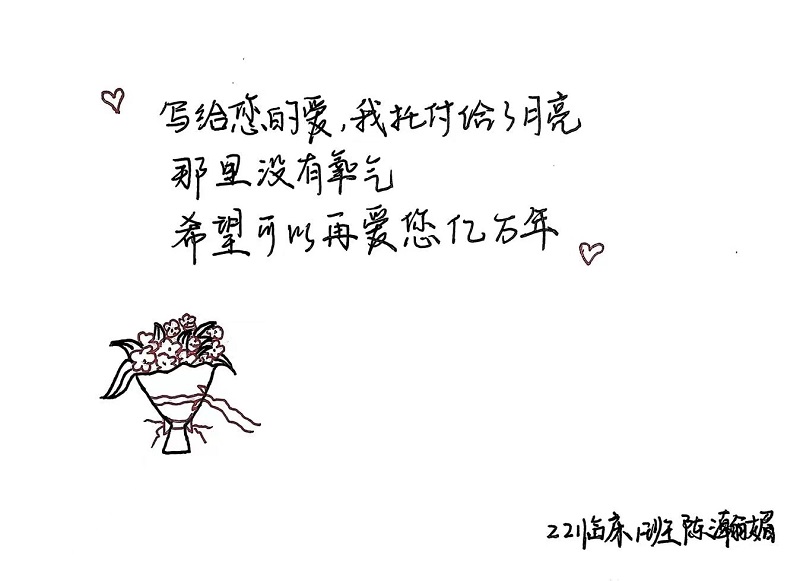 写给您的爱,我托付给了月亮
那里没有氧气
希望可以再爱您亿万年
221临床1班陈瀚媚